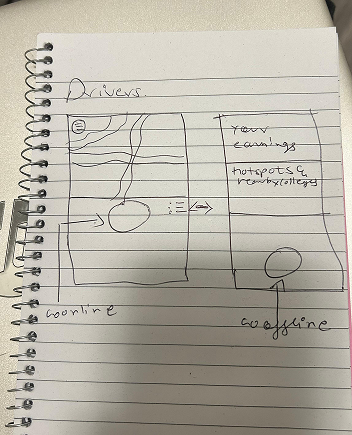 Drivers.
Your
earnings
hotspots &
nearby colleges
Go online
Go offline